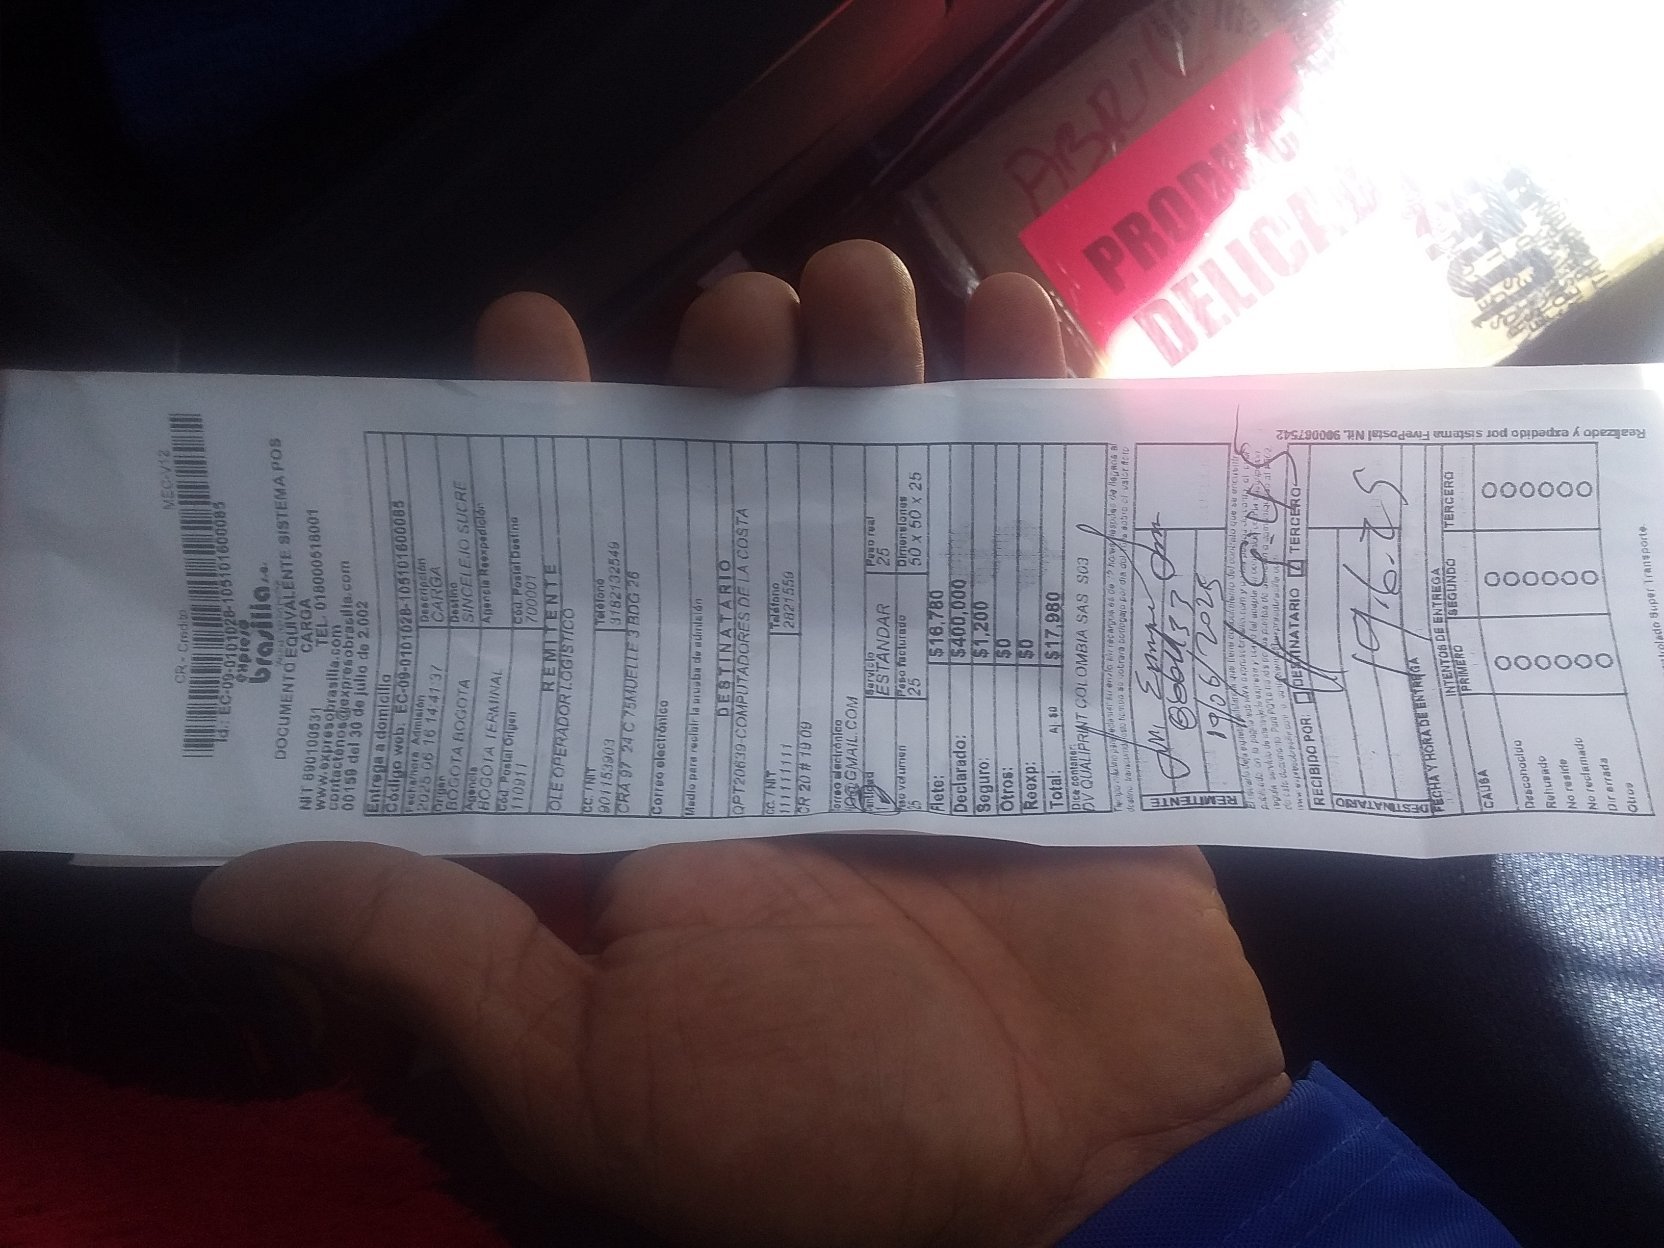 MEC-V12
CR - Credito
Id.: EC-09-0101028-105101600085
expreso
brasilia s.a.
DOCUMENTO EQUIVALENTE SISTEMA POS
CARGA
NIT 890100531 TEL. 018000518001
www.expresobrasilia.com
contactenos@expresobrasilia.com
00159 del 30 de julio de 2.002
Entrega a domicilio
Codigo web: EC-09-0101028-105101600085
Fecha/hora Admisión Descripción
2025 06 16 14:41:37 CARGA
Origen Destino
BOGOTA BOGOTA SINCELEJO SUCRE
Agencia Agencia Reexpedición
BOGOTA TERMINAL
Cod. Postal Origen Cod. Postal Destino
110911 700001
REMITENTE
OLE OPERADOR LOGISTICO
CC. / NIT Teléfono
901153903 3182132549
CRA 97 24 C 75MUELLE 3 BDG 26
Correo electrónico
Medio para recibir la prueba de admisión
DESTINATARIO
QPT20639-COMPUTADORES DE LA COSTA
CC. / NIT Teléfono
1111111111 2821559
CR 20 # 19 09
Correo electrónico
@GMAIL.COM
Servicio Peso real
ESTANDAR 25
Peso volumen Peso facturado Dimensiones
25 25 50 x 50 x 25
Flete: $16,780
Declarado: $400,000
Seguro: $1,200
Otros: $0
Reexp: $0
Total: $17,980
Dice contener:
DV QUALIPRINT COLOMBIA SAS S03
REMITENTE
19/06/2025
RECIBIDO POR: DESTINATARIO TERCERO
DESTINATARIO
19-6-25
FECHA Y HORA DE ENTREGA
INTENTOS DE ENTREGA
PRIMERO SEGUNDO TERCERO
CAUSA
Desconocido
Rehusado
No reside
No reclamado
Dir errada
Otros
Realizado y expedido por sistema FivePostal Nit. 900067542
PRODUC
DELICAD